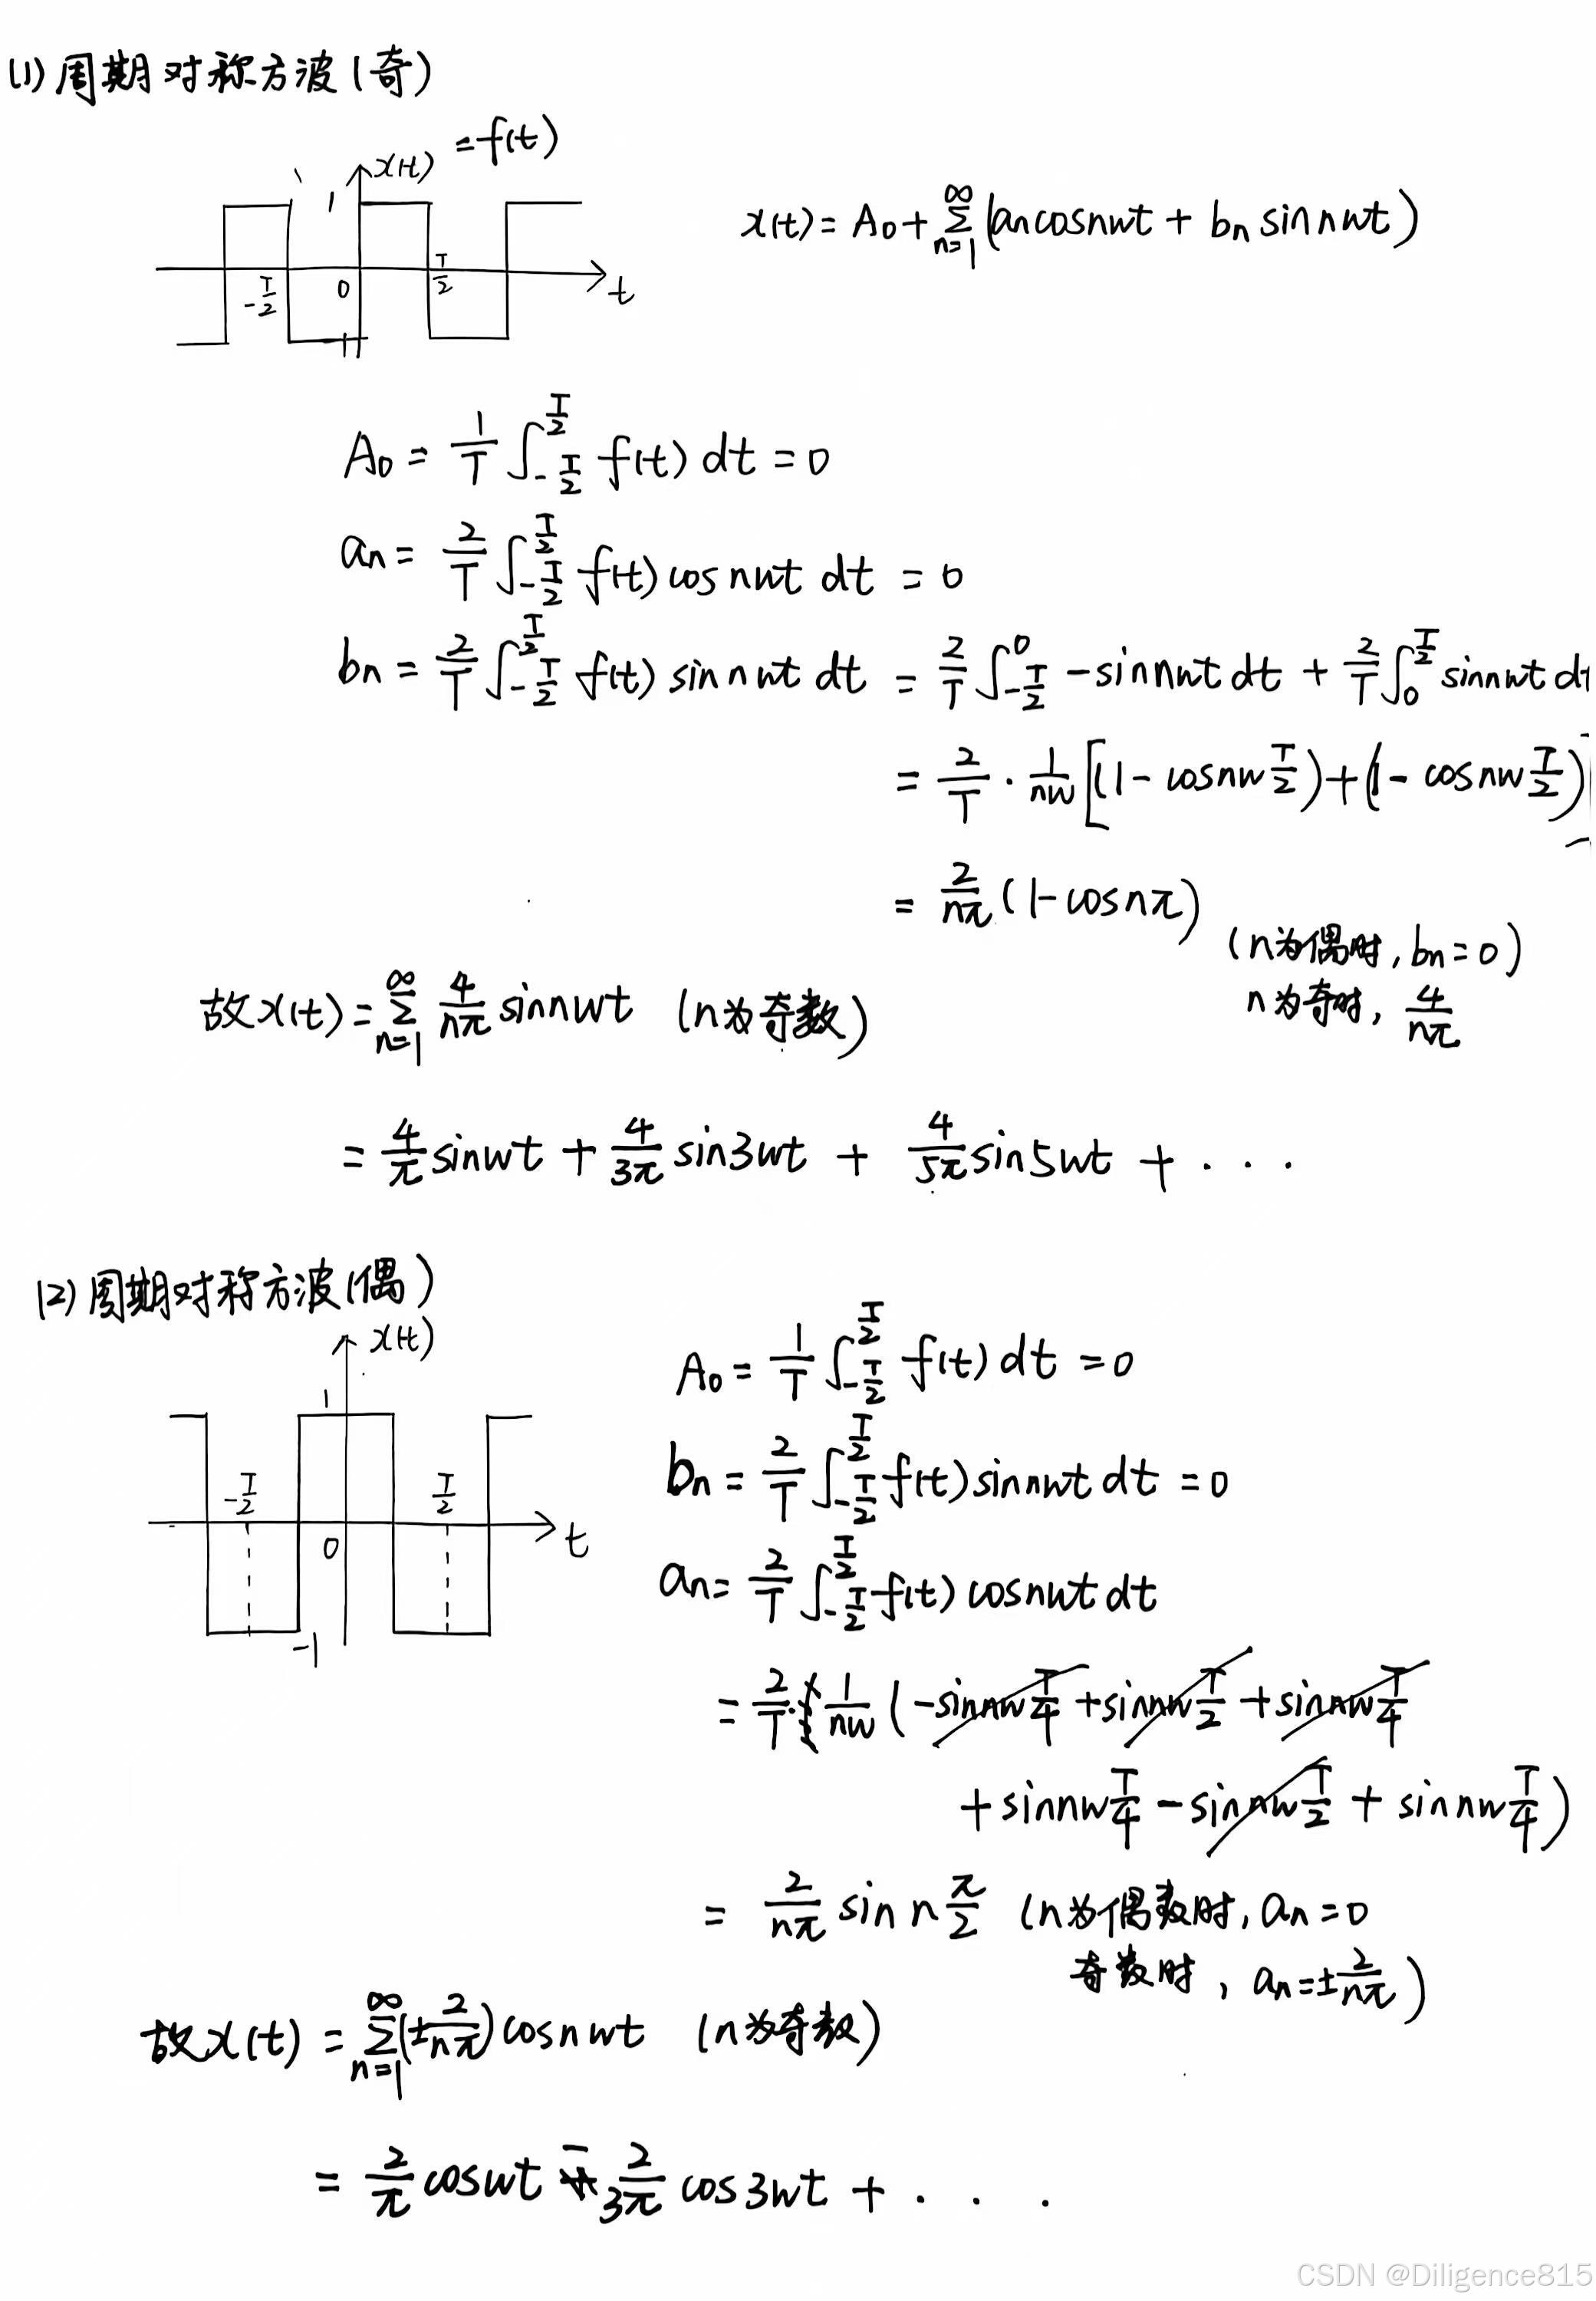 (1) 周期对称方波(奇)
x(t) =f(t)
1
x(t) = A₀ + ∑_{n=1}^{∞} (aₙcosnwt + bₙ sinnwt)
-T/2 0 T/2 t
A₀ = 1/T ∫_{-T/2}^{T/2} f(t) dt = 0
aₙ = 2/T ∫_{-T/2}^{T/2} f(t) cosnwt dt = 0
bₙ = 2/T ∫_{-T/2}^{T/2} f(t) sinnwt dt = 2/T ∫_{-T/2}^{0} -sinnwt dt + 2/T ∫_{0}^{T/2} sinnwt d
= 2/T · 1/nw [(1 - cosnw T/2) + (1 - cosnw T/2)]
= 2/nπ (1-cosnπ)
(n为偶时, bₙ=0)
n为奇时, 4/nπ
故x(t) = ∑_{n=1}^{∞} 4/nπ sinnwt (n为奇数)
= 4/π sinwt + 4/3π sin3wt + 4/5π sin5wt + · · ·
(2) 周期对称方波(偶)
x(t)
1
-T/2 0 T/2 t
-1
A₀ = 1/T ∫_{-T/2}^{T/2} f(t) dt = 0
bₙ = 2/T ∫_{-T/2}^{T/2} f(t) sinnwt dt = 0
aₙ = 2/T ∫_{-T/2}^{T/2} f(t) cosnwt dt
= 2/T · 1/nw (-sinnw T/4 + sinnw T/2 + sinnw T/4
+ sinnw T/4 - sinnw T/2 + sinnw T/4)
= 2/nπ sin n π/2 (n为偶数时, aₙ=0
奇数时, aₙ=±2/nπ)
故x(t) = ∑_{n=1}^{∞} (±2/nπ) cosnwt (n为奇数)
= 2/π coswt - 2/3π cos3wt + · · ·
CSDN @Diligence815